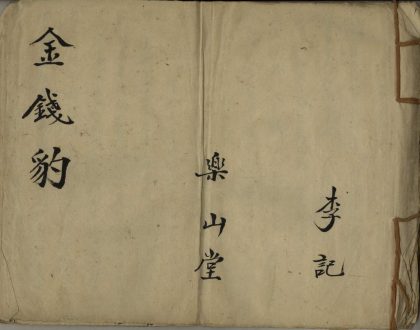 李記
楽山堂
金錢豹